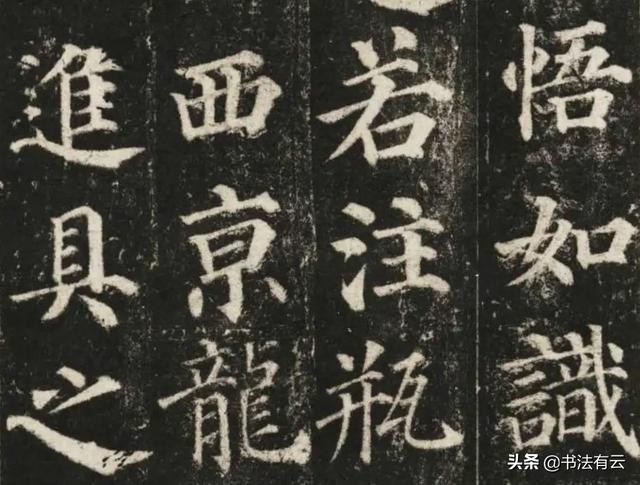 悟如識
若注瓶
西京龍
進具之
头条 @书法有云